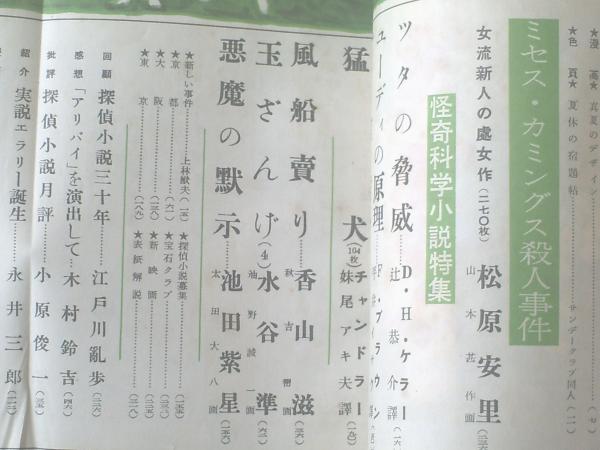 ★漫画★ 真夏のデザイン
★色頁★ 夏休の宿題帖……サンデークラブ同人(一一)
ミセス・カミングス殺人事件
女流新人の處女作(二七〇枚) 松原安里
山本甚作画
怪奇科学小説特集
ツタの脅威……D・H・ケラー
辻恭介譯
ューディの原理……F・ブラウン
猛犬(104枚) チャンドラー
妹尾アキ夫譯
風船賣り……香山滋
玉ざんげ(4) 水谷準
悪魔の默示……池田紫星
太田大八画
★新しい事件……上林猷夫
★京都
★大阪
★東京
★探偵小説募集
★宝石クラブ
★新映画
★表紙解説
回顧 探偵小説三十年……江戸川亂歩
感想 「アリバイ」を演出して……木村鈴吉
批評 探偵小説月評……小原俊一
紹介 実説エラリー誕生……永井三郎